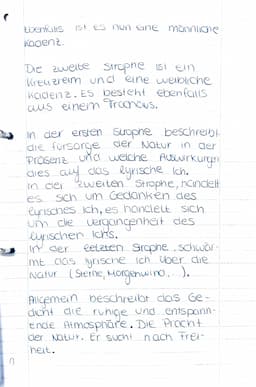 Ebenfalls ist es nun eine männliche
Kadenz.
Die zweite Strophe ist ein
Kreuzreim und eine weibliche
Kadenz. Es besteht ebenfalls
aus einem Trochäus.
In der ersten Strophe beschreibt
die fürsorge der Natur in der
Präsenz und welche Auswirkungen
dies auf das lyrische Ich.
In der zweiten Strophe, handelt
es sich um Gedanken des
lyrisches Ich, es handelt sich
um die Vergangenheit des
lyrischen Ichs.
In der letzten Strophe, schwär-
mt das lyrische Ich über die
Natur (Sterne, Morgenwind, ...).
Allgemein beschreibt das Ge-
dicht die ruhige und entspann-
ende Atmosphäre. Die Pracht
der Natur. Er sucht nach Frei-
heit.